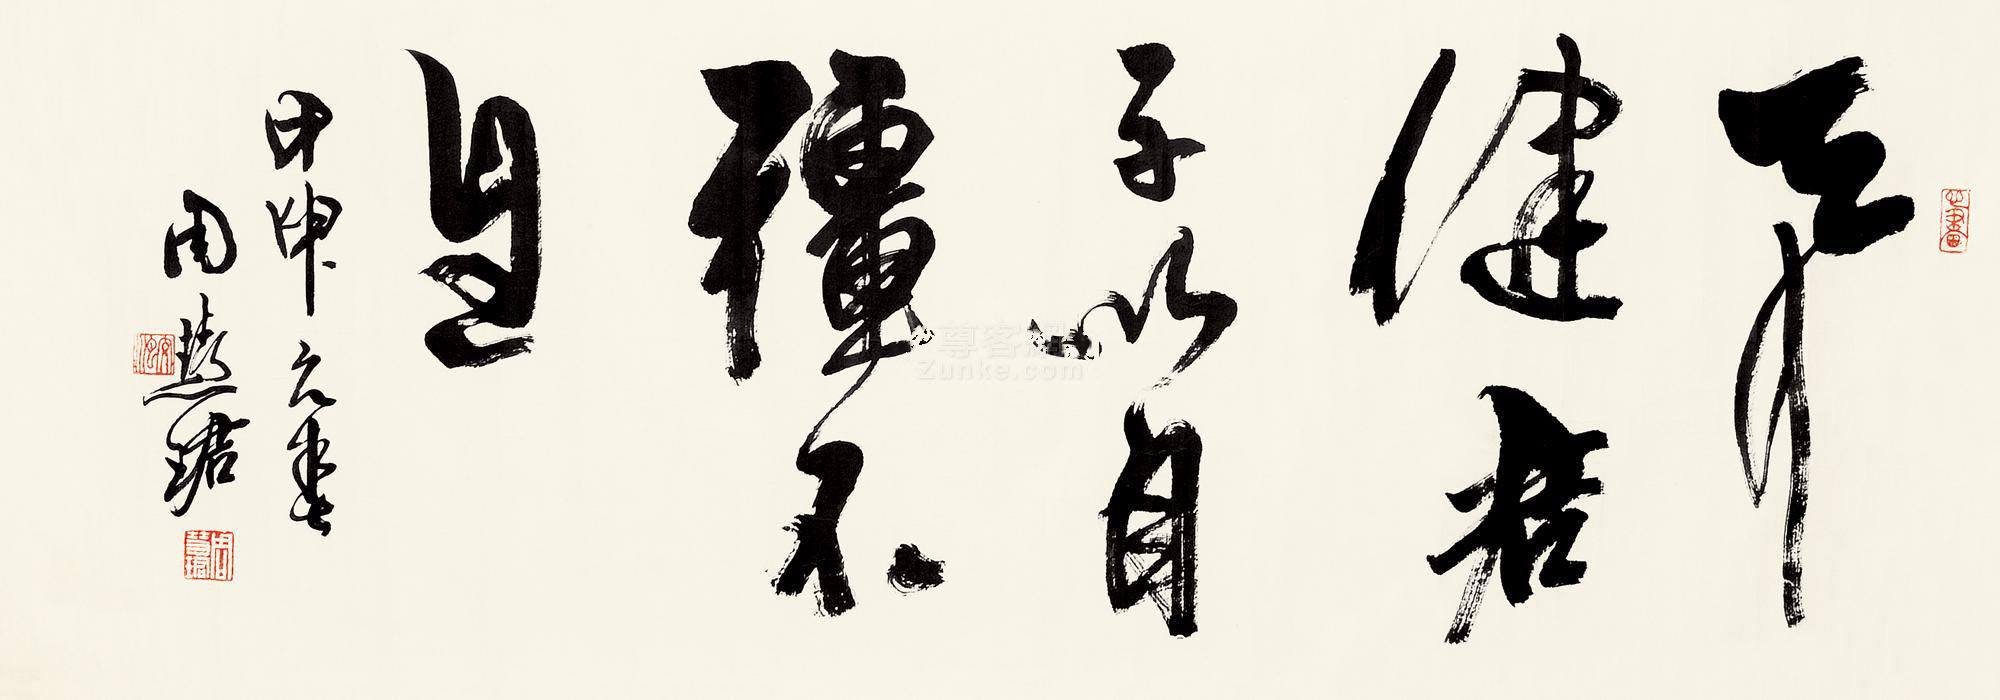 天行
健君
子以自
彊不
息
甲申
周慧珺
周慧珺
尊客網
Zunke.com